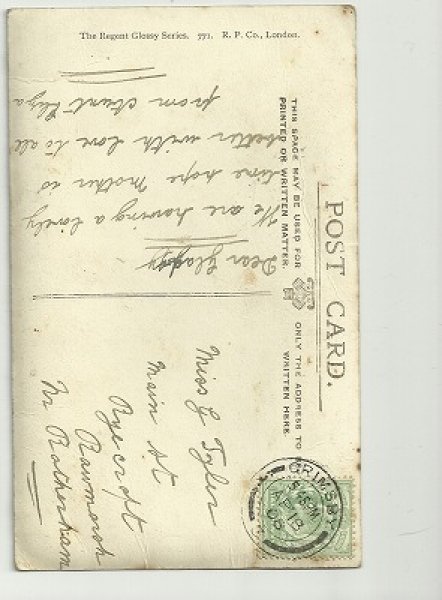 The Regent Glossy Series. 771. R. P. Co., London.
POST CARD.
THIS SPACE MAY BE USED FOR
PRINTED OR WRITTEN MATTER.
ONLY THE ADDRESS TO
WRITTEN HERE
Dear Gladdy
We are having a lovely
time hope Mother is
better with love to all
from Aunt Eliza
Miss G Tyler
Main St
Ryecroft
Rawmarsh
Nr Rotherham
GRIMSBY
AP 13